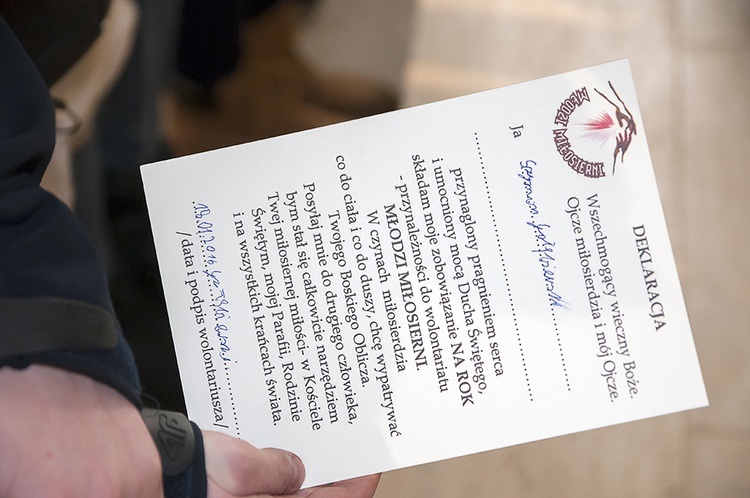 MŁODZI MIŁOSIERNI
DEKLARACJA
Wszechmogący wieczny Boże.
Ojcze miłosierdzia i mój Ojcze.
Ja
przynaglony pragnieniem serca
i umocniony mocą Ducha Świętego,
składam moje zobowiązanie NA ROK
- przynależności do wolontariatu
MŁODZI MIŁOSIERNI.
W czynach miłosierdzia
co do ciała i co do duszy, chcę wypatrywać
Twojego Boskiego Oblicza.
Posyłaj mnie do drugiego człowieka,
bym stał się całkowicie narzędziem
Twej miłosiernej miłości- w Kościele
Świętym, mojej Parafii, Rodzinie
i na wszystkich krańcach świata.
/data i podpis wolontariusza/